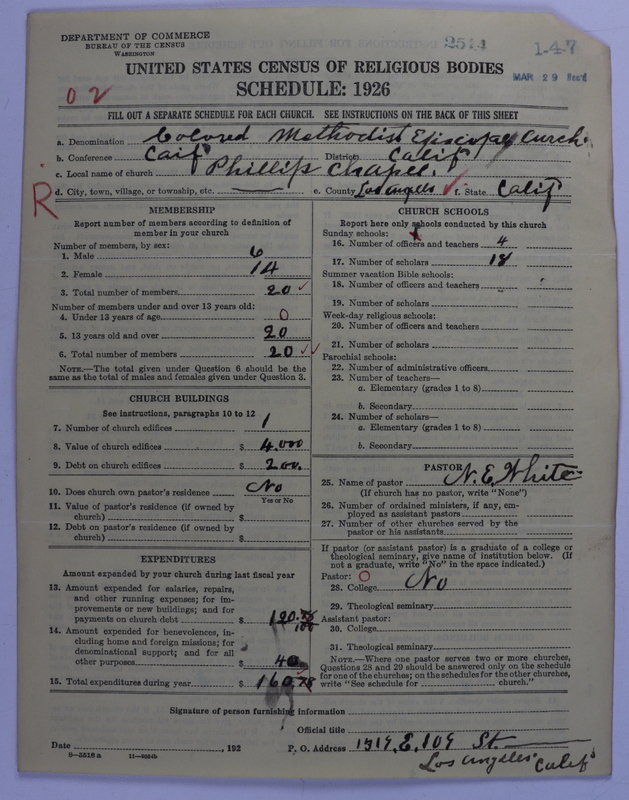 DEPARTMENT OF COMMERCE
BUREAU OF THE CENSUS
WASHINGTON
2514
1-4-7
UNITED STATES CENSUS OF RELIGIOUS BODIES
MAR 29 Rec'd
SCHEDULE: 1926
02
FILL OUT A SEPARATE SCHEDULE FOR EACH CHURCH. SEE INSTRUCTIONS ON THE BACK OF THIS SHEET
a. Denomination Colored Methodist Episcopal Curch.
b. Conference Calif District Calif
c. Local name of church Phillips Chapel.
d. City, town, village, or township, etc. e. County Los Angeles f. State Calif
R
MEMBERSHIP
Report number of members according to definition of
member in your church
Number of members, by sex:
1. Male 6
2. Female 14
3. Total number of members 20 ✓
Number of members under and over 13 years old:
4. Under 13 years of age 0
5. 13 years old and over 20
6. Total number of members 20 ✓✓
NOTE.—The total given under Question 6 should be
same as the total of males and females given under Question 3.
CHURCH BUILDINGS
See instructions, paragraphs 10 to 12
7. Number of church edifices 1
8. Value of church edifices $ 4.000
9. Debt on church edifices $ 200.
10. Does church own pastor's residence No
Yes or No
11. Value of pastor's residence (if owned by
church) $
12. Debt on pastor's residence (if owned by
church) $
EXPENDITURES
Amount expended by your church during last fiscal year
13. Amount expended for salaries, repairs,
and other running expenses; for im-
provements or new buildings; and for
payments on church debt $ 120.78
100
14. Amount expended for benevolences, in-
cluding home and foreign missions; for
denominational support; and for all
other purposes $ 40
15. Total expenditures during year $ 160.78
CHURCH SCHOOLS
Report here only schools conducted by this church
Sunday schools:
16. Number of officers and teachers 4
17. Number of scholars 18
Summer vacation Bible schools:
18. Number of officers and teachers
19. Number of scholars
Week-day religious schools:
20. Number of officers and teachers
21. Number of scholars
Parochial schools:
22. Number of administrative officers
23. Number of teachers—
a. Elementary (grades 1 to 8)
b. Secondary
24. Number of scholars—
a. Elementary (grades 1 to 8)
b. Secondary
PASTOR
25. Name of pastor N. E. White
(If church has no pastor, write "None")
26. Number of ordained ministers, if any, em-
ployed as assistant pastors
27. Number of other churches served by the
pastor or his assistants
If pastor (or assistant pastor) is a graduate of a college or
theological seminary, give name of institution below. (If
not a graduate, write "No" in the space indicated.)
Pastor: O
28. College No
29. Theological seminary
Assistant pastor:
30. College
31. Theological seminary
NOTE.—Where one pastor serves two or more churches,
Questions 28 and 29 should be answered only on the schedule
for one of the churches; on the schedules for the other churches,
write "See schedule for church."
Signature of person furnishing information
Official title
Date , 192 P. O. Address 1517, E. 109 St.
Los Angeles Calif
9-5518a 11-4054b